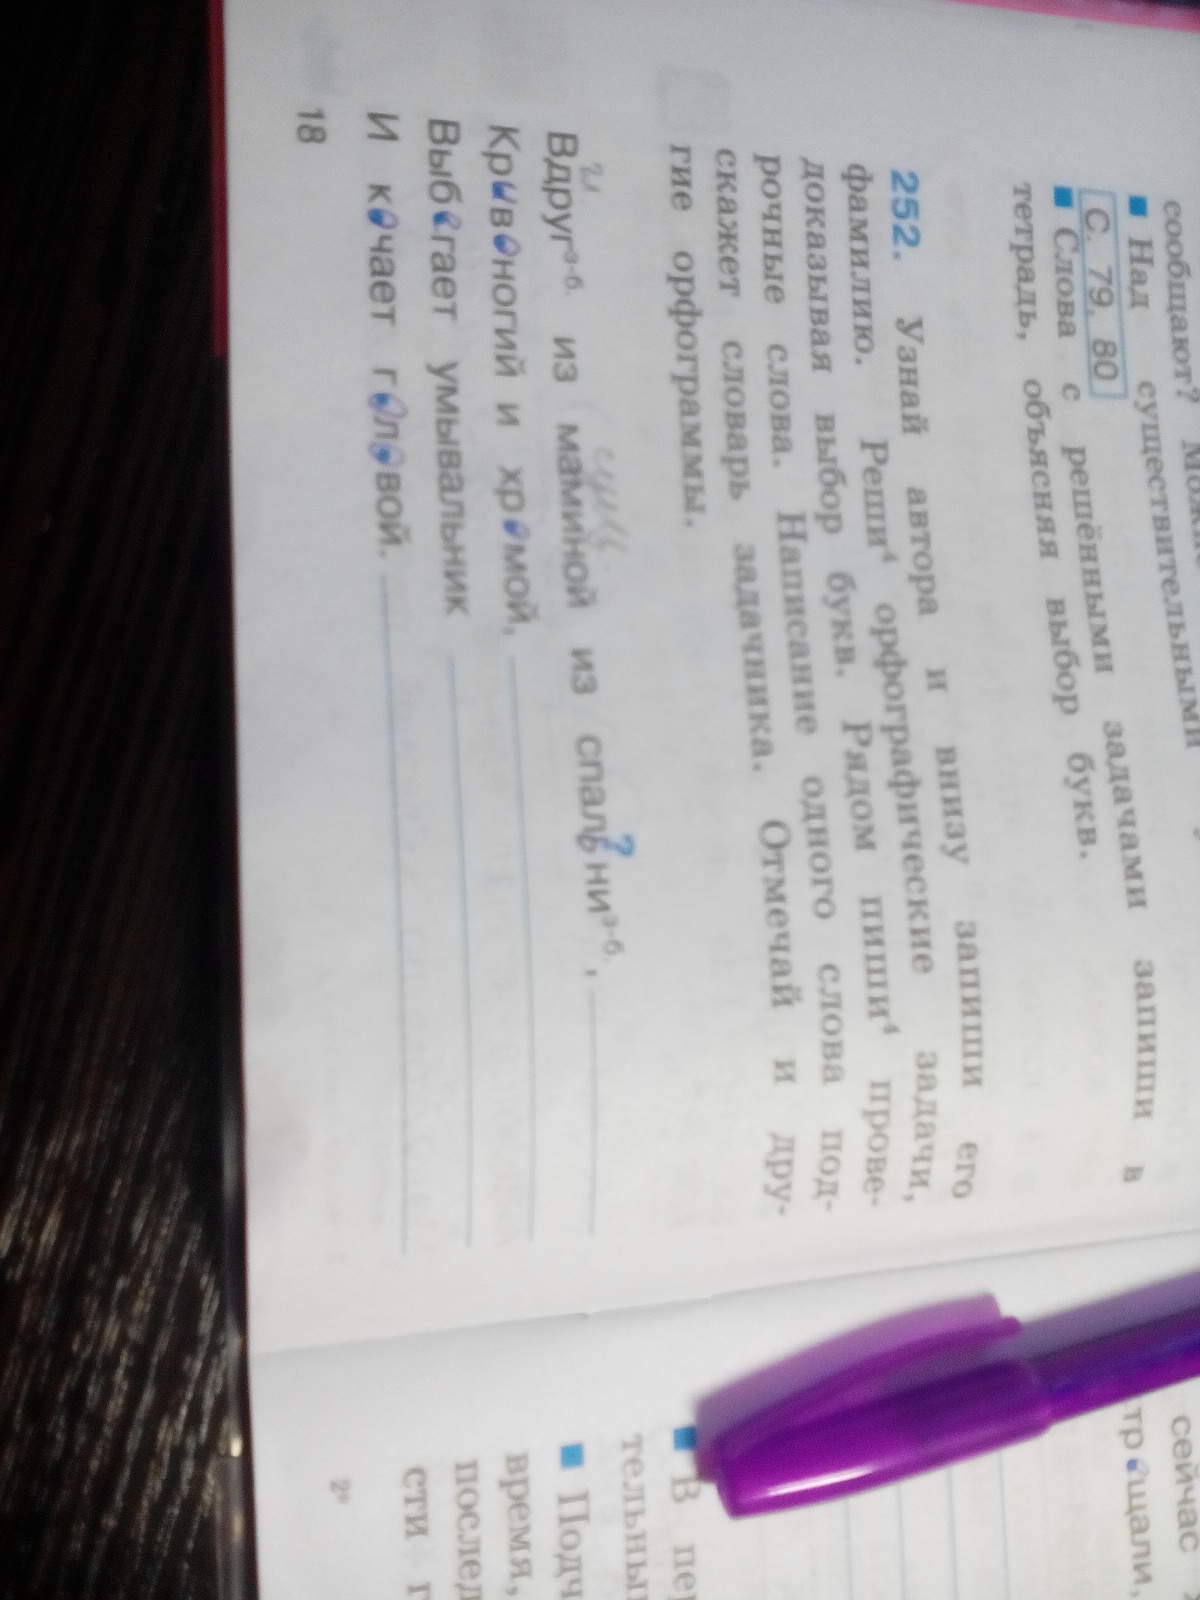 сообщают?
■ Над существительными
С. 79, 80
■ Слова с решёнными задачами запиши в
тетрадь, объясняя выбор букв.
252. Узнай автора и внизу запиши его
фамилию. Реши⁴ орфографические задачи,
доказывая выбор букв. Рядом пиши⁴ прове-
рочные слова. Написание одного слова под-
скажет словарь задачника. Отмечай и дру-
гие орфограммы.
Вдруг³⁻ᵇ· из маминой из спальни³⁻ᵇ·,
?
Кривоногий и хромой,
Выбегает умывальник
И качает головой.
18
сейчас
щали,
■ В
тельны
■ Подч
время,
послед
сти г
2*